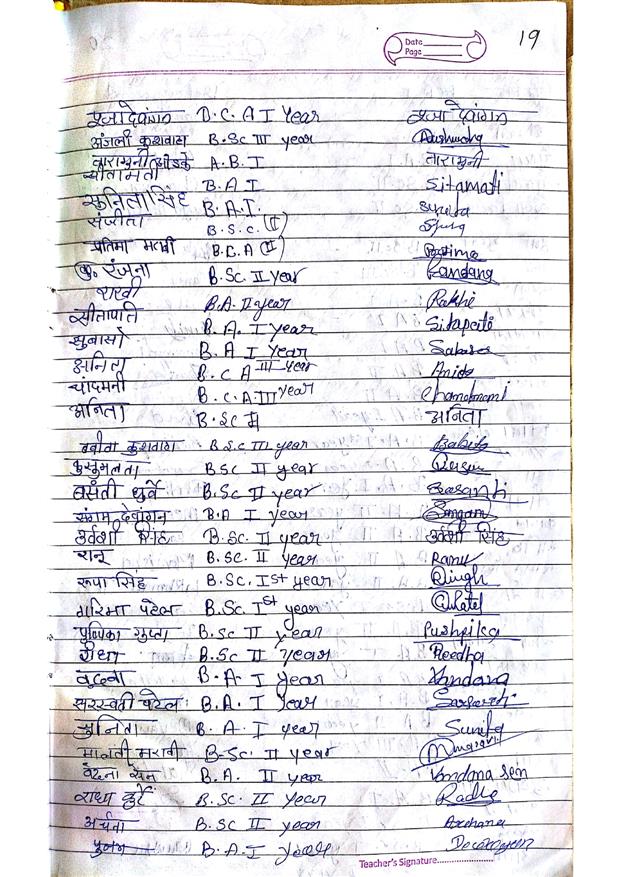 19
Date
Page
पूजा देवांगन B.C.A I Year पूजा देवांगन
अंजली कुशवाहा B.Sc III year
तारामुनी ओडके A.B.I तारामुनी
सीतामती B.A I Sitamati
सुनिता सिंह B.A.I. Sunita
संजीता B.S.C. (II)
प्रतिमा मरावी B.C.A (II) Pratima
कु. रंजना B.Sc. II year
राखी B.A. II year Rakhi
सीतापति B.A. I year Sitapati
सुबासो B.A I Year
अनिता B.C A III year Anita
चांदमनी B.C.A. III year Chandmani
अनिता B.SC II अनिता
बबीता कुशवाहा B.S.C III year Babita
कुसुमलता B.SC II year
बसंती धुर्वे B.Sc II year Basanti
संगम देवांगन B.A I year Sangam
उर्वशी सिंह B.SC. II year उर्वशी सिंह
रानू B.SC. II year Ranu
रूपा सिंह B.SC. Ist year RSingh
गरिमा पटेल B.Sc. Ist year GPatel
पुष्पिका गुप्ता B.Sc II year Pushpika
रीधा B.Sc II year Reedha
वंदना B.A I year Vandana
सरस्वती पटेल B.A. I year
सुनिता B.A. I year Sunita
मालती मरावी B-Sc. II year
वंदना सेन B.A. II year Vandana Sen
राधा कुर्रे B.Sc. II Year Radhe
अर्चना B.SC II year Archana
पुनम B.A. I year
Teacher's Signature